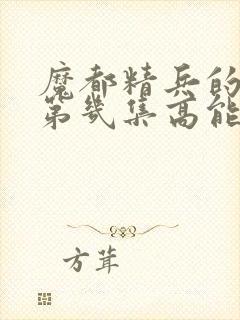 魔都精兵的
第几集高能
方茸